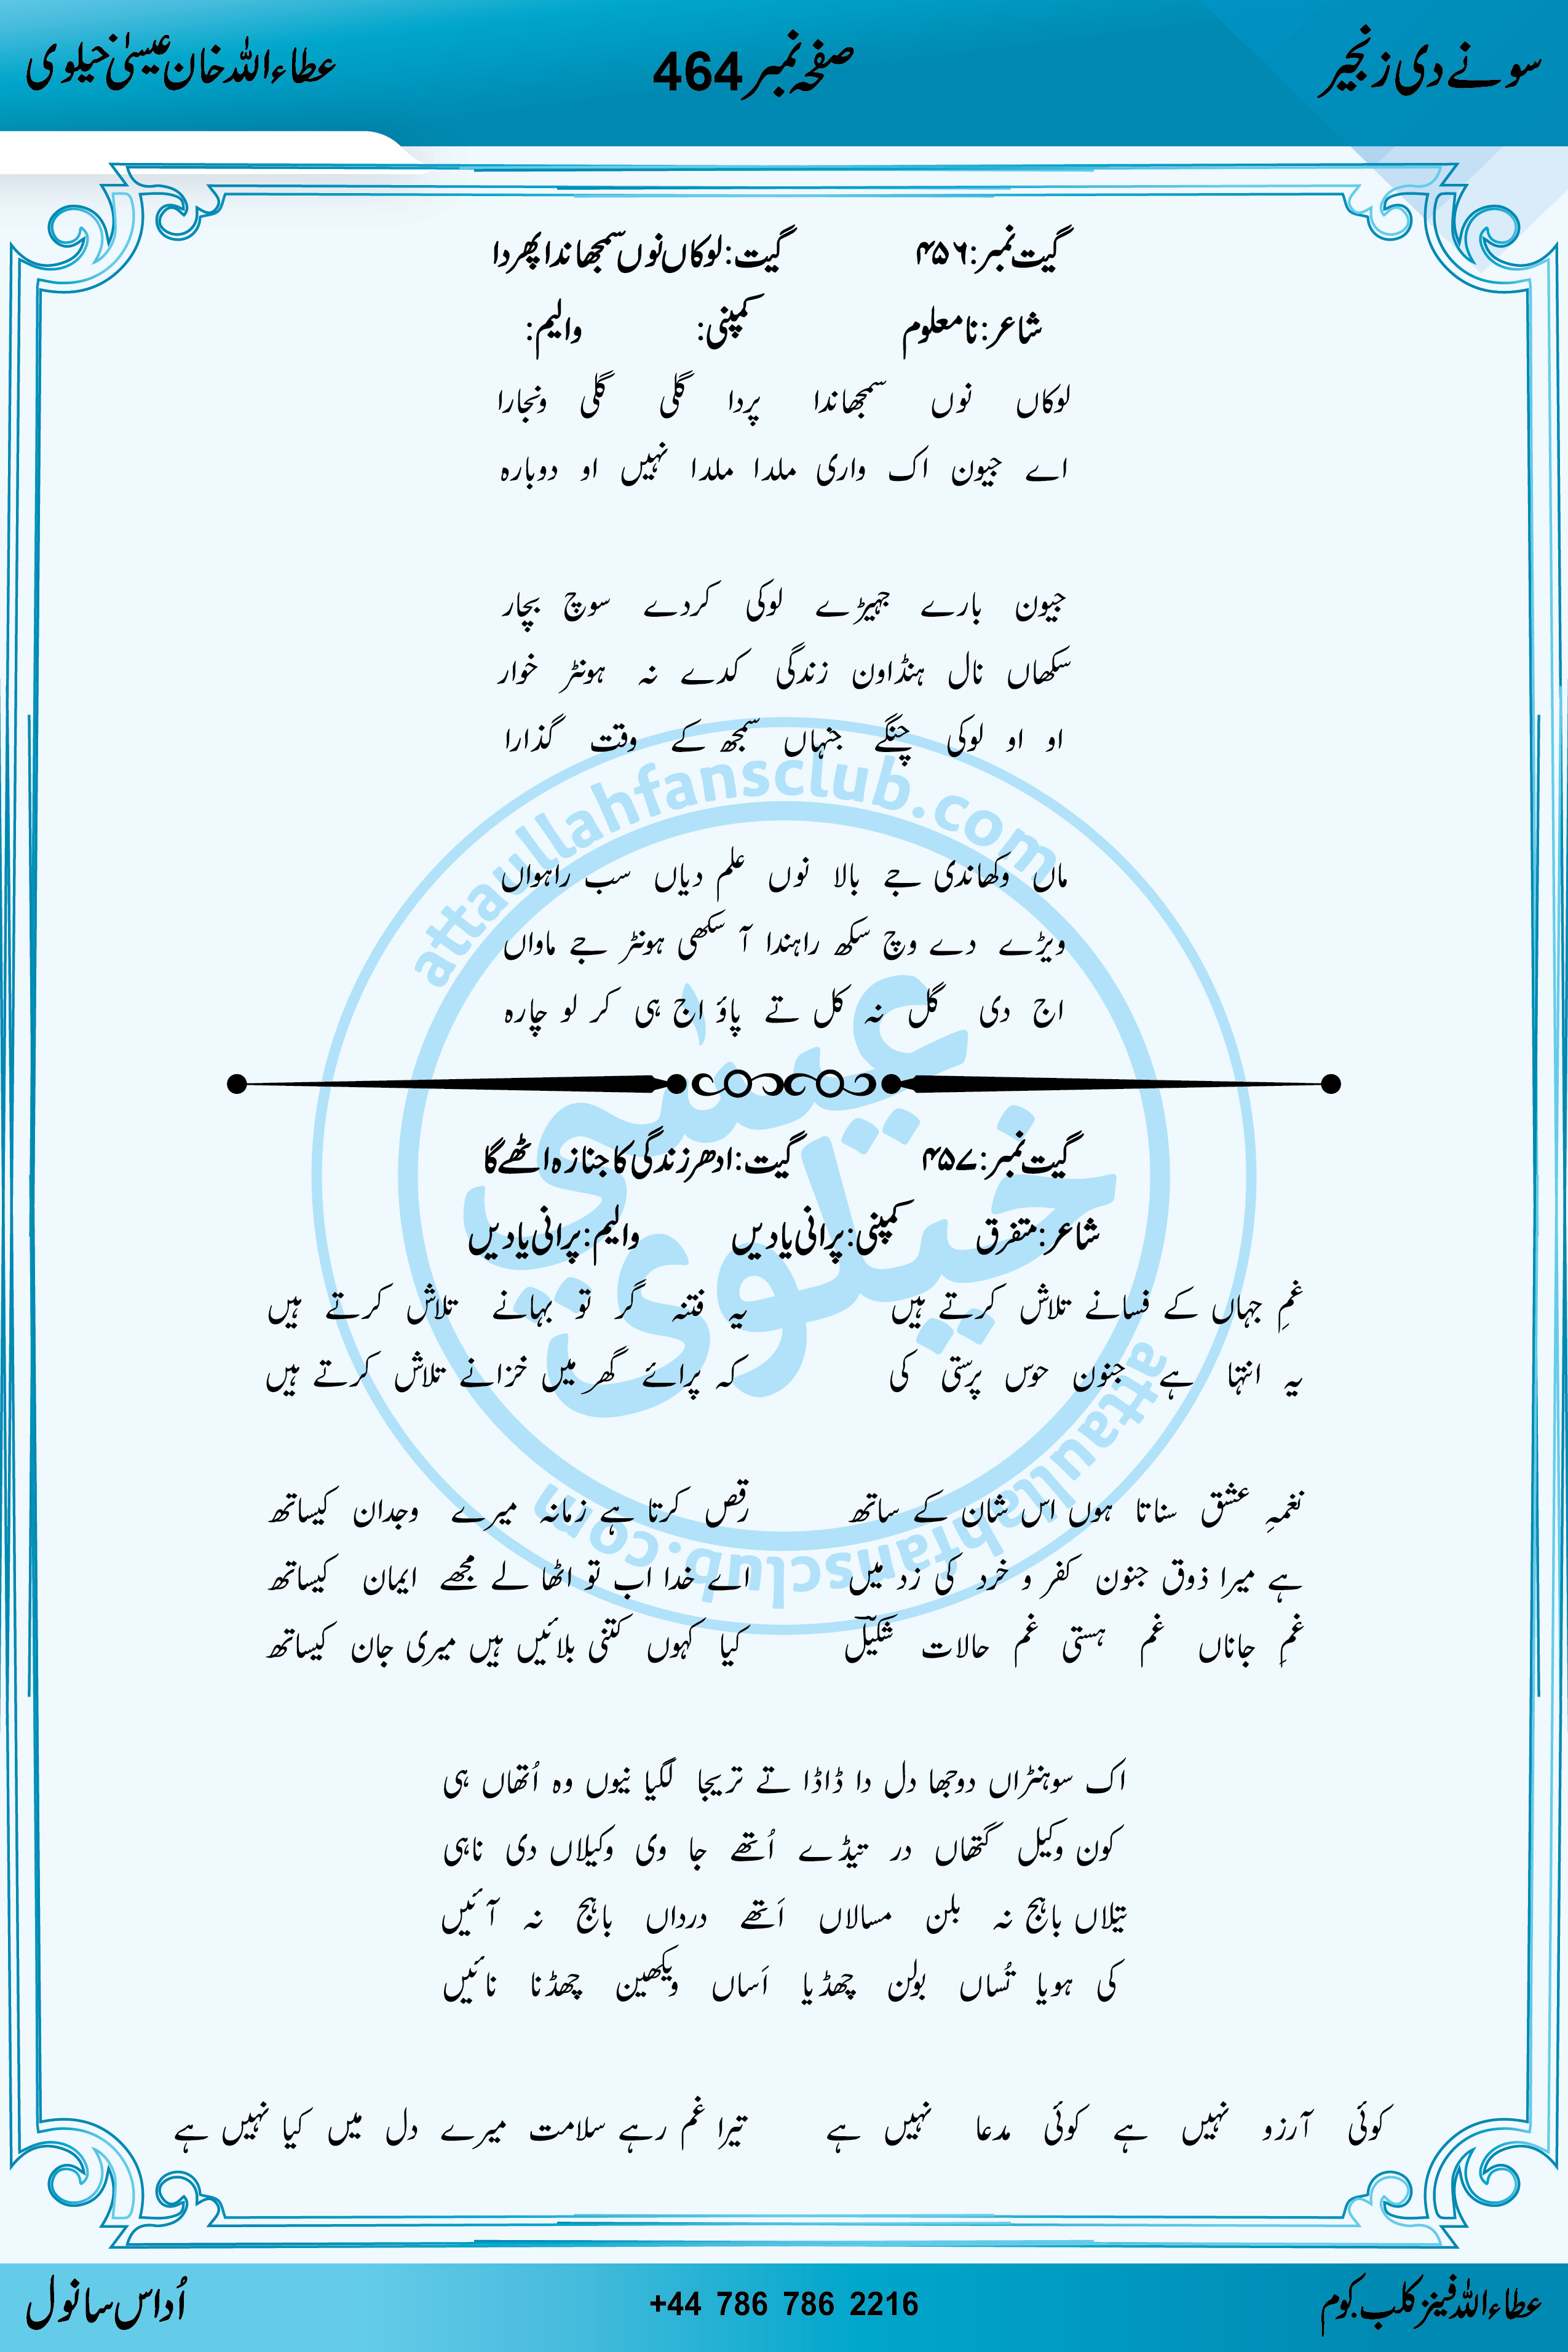 سونے دی زنجیر صفحہ نمبر 464 عطاء اللہ خان عیسیٰ خیلوی
گیت نمبر: ۴۵۶ گیت: لوکاں نوں سمجھاندا پھردا
شاعر: نامعلوم کمپنی: والیم:
لوکاں نوں سمجھاندا پردا گلی گلی ونجارا
اے جیون اک واری ملدا ملدا نہیں او دوبارہ
جیون بارے جہیڑے لوکی کردے سوچ بچار
سکھاں نال ہنڈاون زندگی کدے نہ ہونٹر خوار
او او لوکی چنگے جنہاں سمجھ کے وقت گذارا
ماں وکھاندی جے بالا نوں علم دیاں سب راہواں
ویڑے دے وچ سکھ راہندا آ سکھی ہونٹر جے ماواں
اج دی گل نہ کل تے پاؤ اج ہی کر لو چارہ
گیت نمبر: ۴۵۷ گیت: ادھر زندگی کا جنازہ اٹھے گا
شاعر: متفرق کمپنی: پرانی یادیں والیم: پرانی یادیں
غمِ جہاں کے فسانے تلاش کرتے ہیں یہ فتنہ گر تو بہانے تلاش کرتے ہیں
یہ انتہا ہے جنون حوس پرستی کی کہ پرائے گھر میں خزانے تلاش کرتے ہیں
نغمہِ عشق سناتا ہوں اس شان کے ساتھ رقص کرتا ہے زمانہ میرے وجدان کیساتھ
ہے میرا ذوق جنون کفر و خرد کی زد میں اے خدا اب تو اٹھا لے مجھے ایمان کیساتھ
غمِ جاناں غم ہستی غم حالات شکیلؔ کیا کہوں کتنی بلائیں ہیں میری جان کیساتھ
اک سوہنٹراں دوجھا دل دا ڈاڈا تے تریجا لگیا نیوں وہ اُتھاں ہی
کون وکیل گتھاں در تیڈے اُتھے جا وی وکیلاں دی ناہی
تیلاں باہج نہ بلن مسالاں اَتھے درداں باہج نہ آئیں
کی ہویا تُساں بولن چھڈیا اَساں ویکھین چھڈنا نائیں
کوئی آرزو نہیں ہے کوئی مدعا نہیں ہے تیرا غم رہے سلامت میرے دل میں کیا نہیں ہے
attaullahfansclub.com
عیسٰی
خیلوی
attaullahfansclub.com
عطاء اللہ فینز کلب.کوم +44 786 786 2216 اُداس سانول